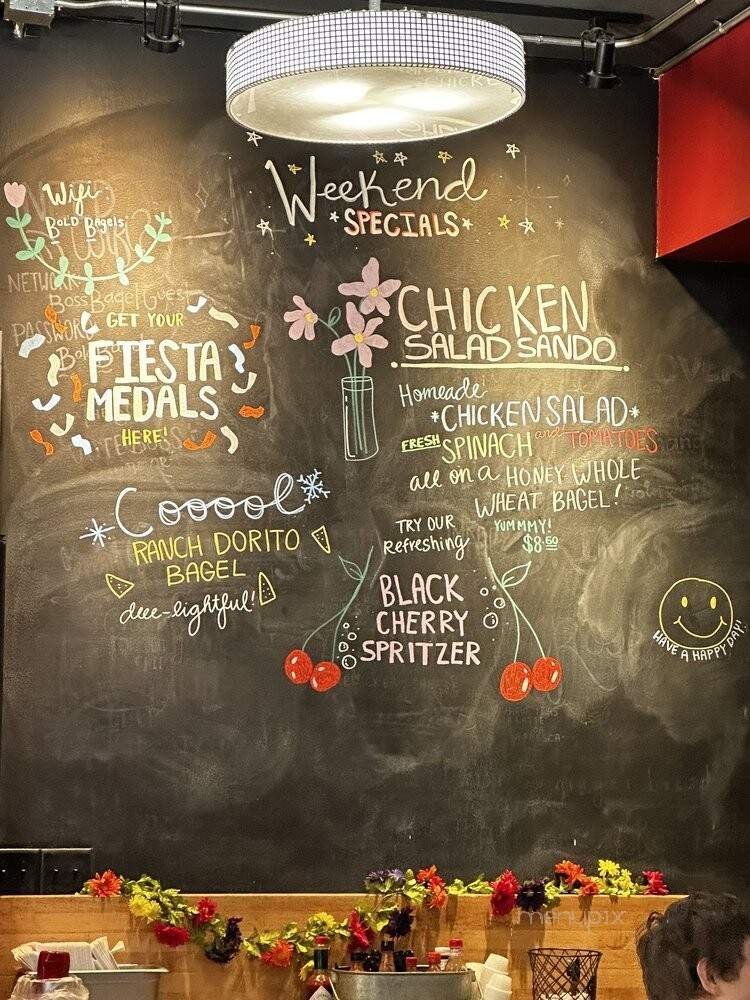 Weekend
*SPECIALS*
Wifi:
BOLD Bagels
NETWORK
BossBagelGuest
PASSWORD
GET YOUR
FIESTA
MEDALS
HERE!
Cooool
RANCH DORITO
BAGEL
deee-lightful!
CHICKEN
SALAD SANDO
Homeade
*CHICKEN SALAD*
FRESH SPINACH and TOMATOES
all on a HONEY WHOLE
WHEAT BAGEL!
YUMMMY!
$8.50
TRY OUR
Refreshing
BLACK
CHERRY
SPRITZER
HAVE A HAPPY DAY!
menupix